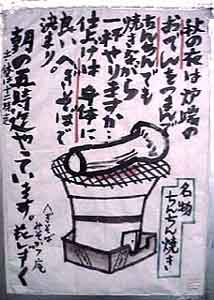 秋の夜は炉端の
おでんをつまんで
ちんちんでも
焼きながら
一杯やりますか…
仕上げは身体に
良いへぎそばで
決まり。
朝の五時迄やっています。
名物
ちんちん焼き
へぎそば